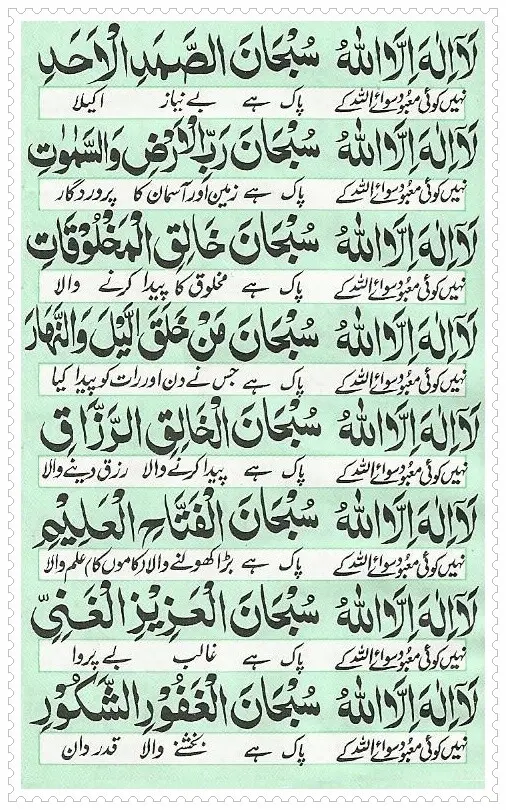 لَآ اِلٰهَ اِلَّا اللهُ سُبْحَانَ الصَّمَدِ الْاَحَدِ
نہیں کوئی معبود سوائے اللہ کے پاک ہے بے نیاز اکیلا
لَآ اِلٰهَ اِلَّا اللهُ سُبْحَانَ رَبِّ الْاَرْضِ وَالسَّمٰوٰتِ
نہیں کوئی معبود سوائے اللہ کے پاک ہے زمین اور آسمان کا پروردگار
لَآ اِلٰهَ اِلَّا اللهُ سُبْحَانَ خَالِقِ الْمَخْلُوْقَاتِ
نہیں کوئی معبود سوائے اللہ کے پاک ہے مخلوق کا پیدا کرنے والا
لَآ اِلٰهَ اِلَّا اللهُ سُبْحَانَ مَنْ خَلَقَ الَّيْلَ وَالنَّهَارَ
نہیں کوئی معبود سوائے اللہ کے پاک ہے جس نے دن اور رات کو پیدا کیا
لَآ اِلٰهَ اِلَّا اللهُ سُبْحَانَ الْخَالِقِ الرَّزَّاقِ
نہیں کوئی معبود سوائے اللہ کے پاک ہے پیدا کرنے والا رزق دینے والا
لَآ اِلٰهَ اِلَّا اللهُ سُبْحَانَ الْفَتَّاحِ الْعَلِيْمِ
نہیں کوئی معبود سوائے اللہ کے پاک ہے بڑا کھولنے والا (کاموں کا) علم والا
لَآ اِلٰهَ اِلَّا اللهُ سُبْحَانَ الْعَزِيْزِ الْغَنِىِّ
نہیں کوئی معبود سوائے اللہ کے پاک ہے غالب بے پروا
لَآ اِلٰهَ اِلَّا اللهُ سُبْحَانَ الْغَفُوْرِ الشَّكُوْرِ
نہیں کوئی معبود سوائے اللہ کے پاک ہے بخشنے والا قدر دان